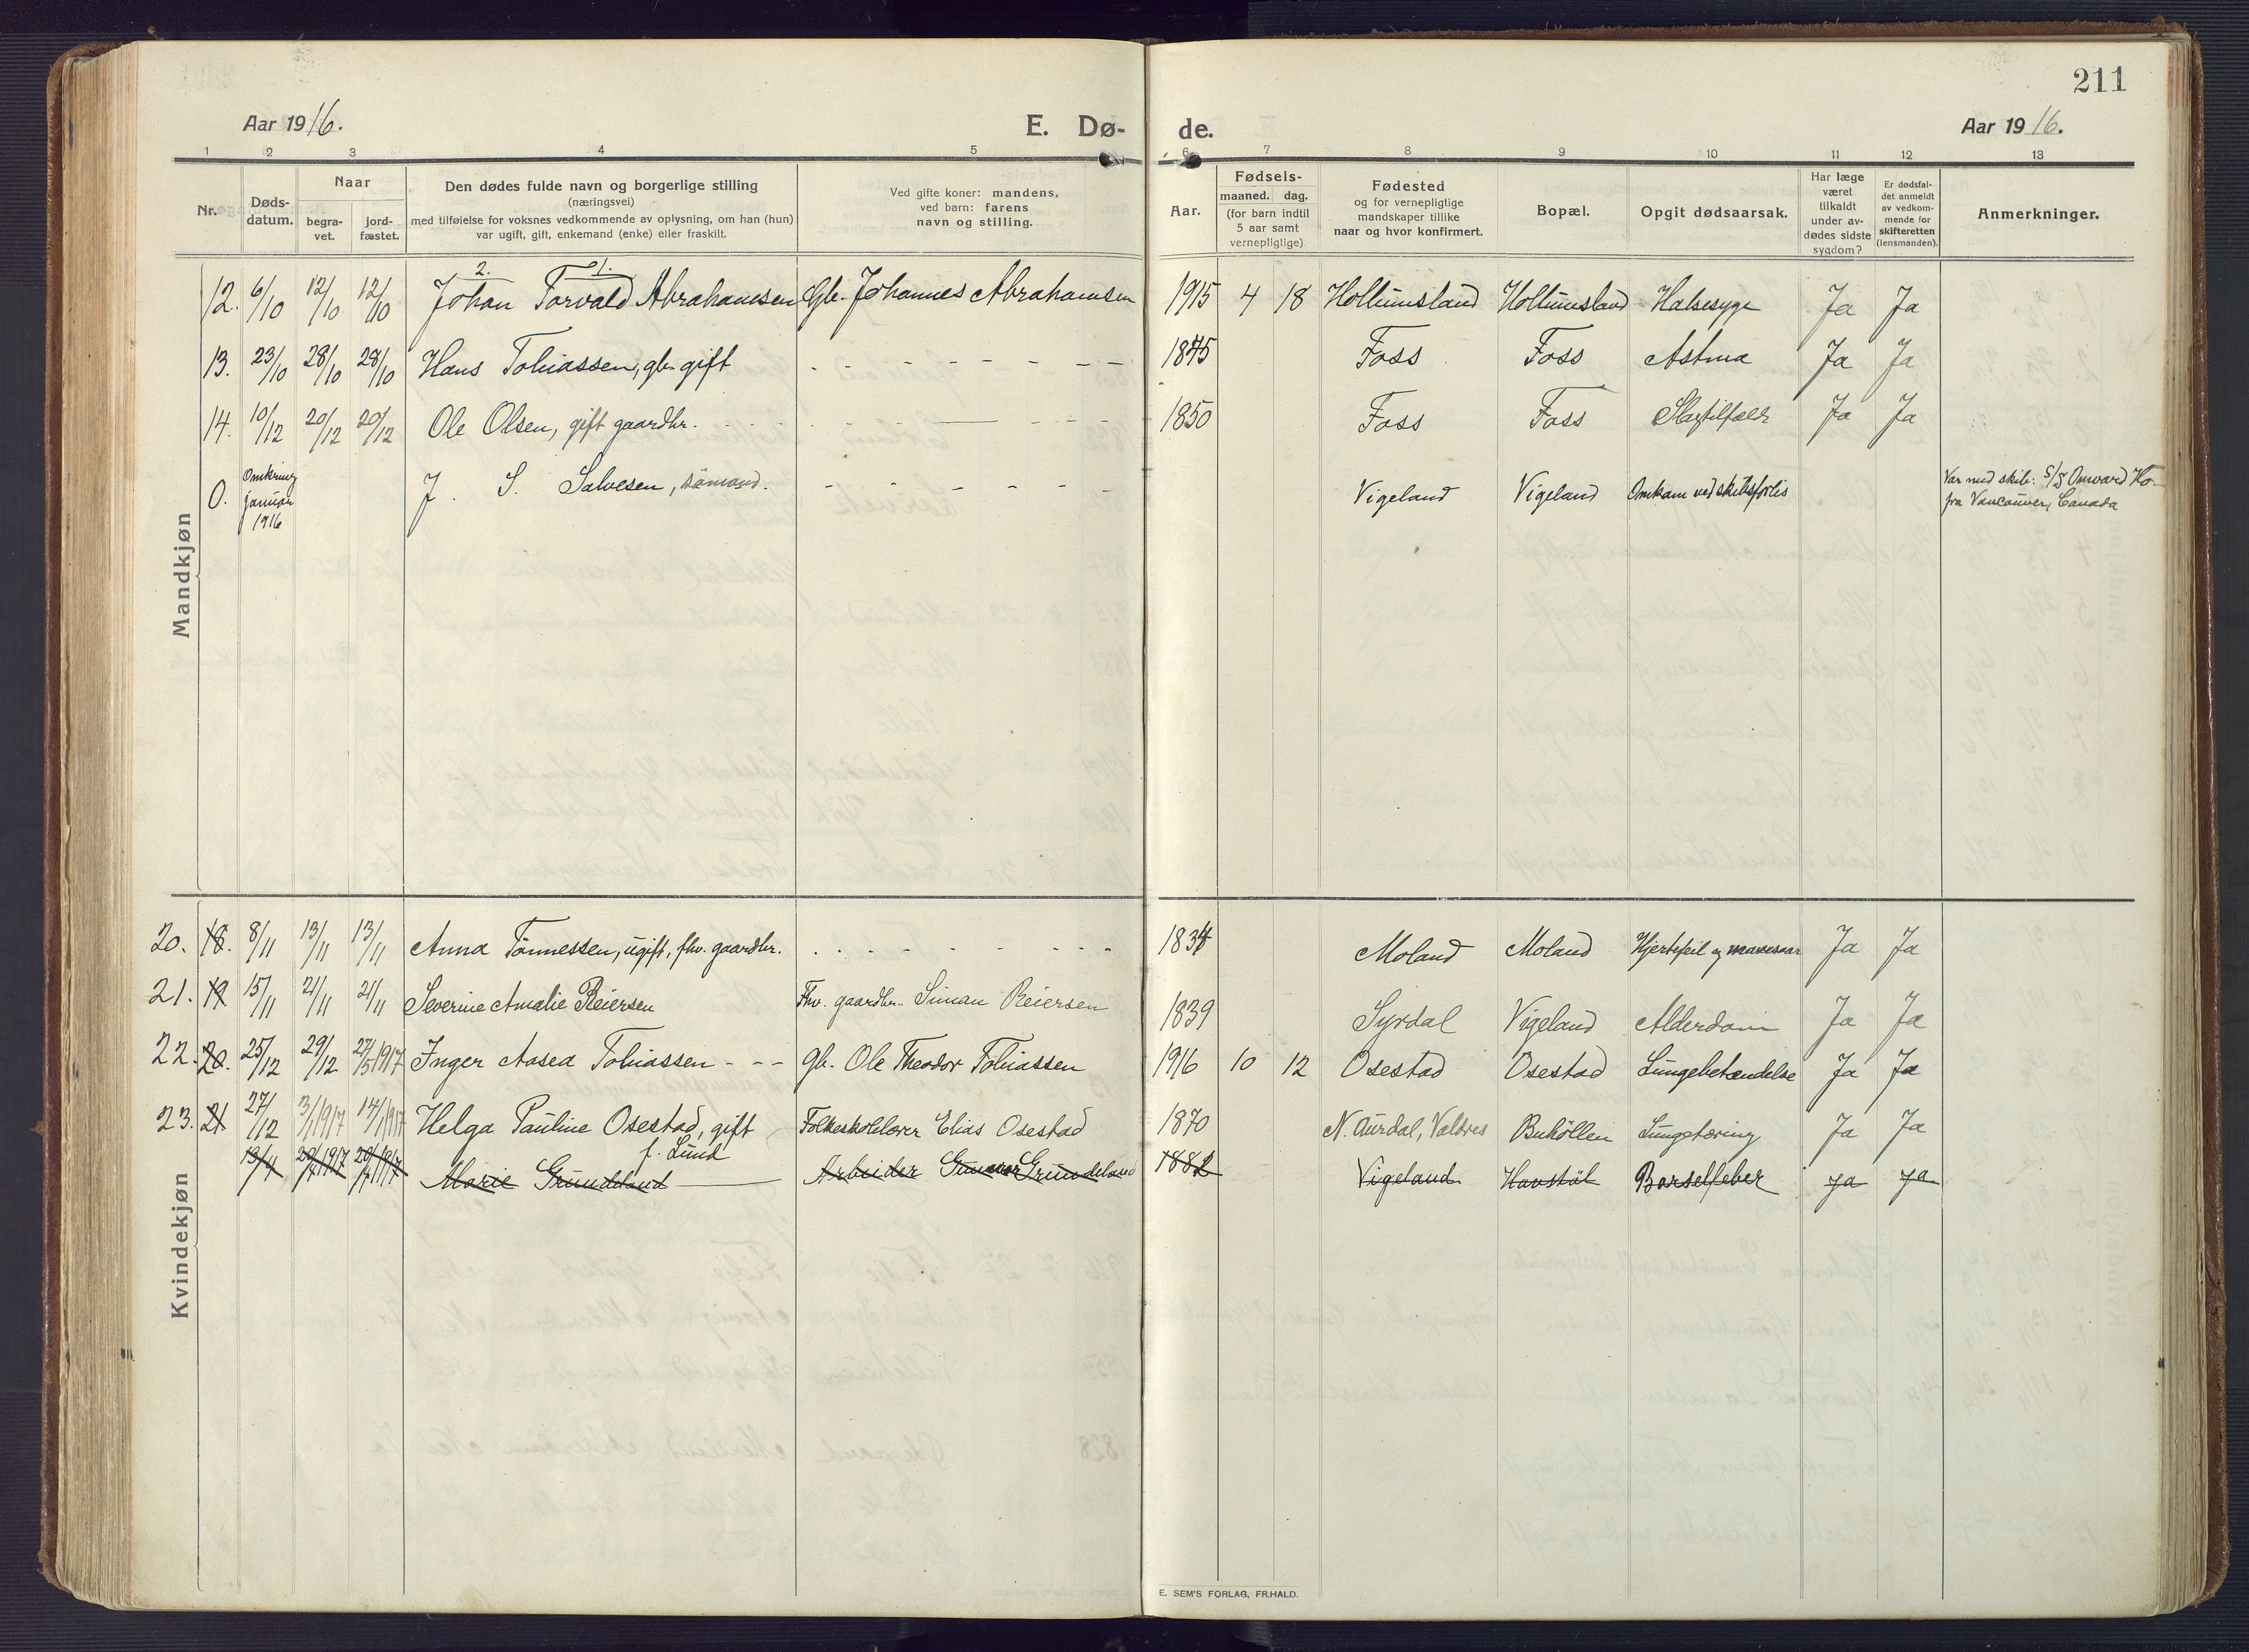 211
Aar 1916. E. Dø- de. Aar 1916.
1 2 3 4 5 6 7 8 9 10 11 12 13
Nr. Døds-datum. Naar begra-vet. jord-fæstet. Den dødes fulde navn og borgerlige stilling (næringsvei) med tilføielse for voksnes vedkommende av oplysning, om han (hun) var ugift, gift, enkemand (enke) eller fraskilt. Ved gifte koner: mandens, ved barn: farens navn og stilling. Aar. Fødsels- maaned. dag. (for barn indtil 5 aar samt vernepligtige) Fødested og for vernepligtige mandskaper tillike naar og hvor konfirmert. Bopæl. Opgit dødsaarsak. Har læge været tilkaldt under av-dødes sidste sygdom? Er dødsfal-det anmeldt av vedkom-mende for skifteretten (lensmanden). Anmerkninger.
Mandkjøn
2. 1.
12. 6/10 12/10 12/10 Johan Torvald Abrahamsen Gbr. Johannes Abrahamsen 1915 4 18 Hollumsland Hollumsland Halsesyge Ja Ja
13. 23/10 28/10 28/10 Hans Tobiassen, gbr. gift 1845 Foss Foss Astma Ja Ja
14. 10/12 20/12 20/12 Ole Olsen, gift gaardbr. 1850 Foss Foss Slagtilfælde Ja Ja
0. Omkring januar 1916 J. S. Salvesen, sømand. Vigeland Vigeland Omkom ved skibsforlis Var med skib: S/S Onward Ho fra Vancouver, Canada
Kvindekjøn
20. 18. 8/11 13/11 13/11 Anna Tønnessen, ugift, fhv. gaardbr. 1834 Moland Moland Hjertefeil og mavesaar Ja Ja
21. 19 15/11 21/11 21/11 Severine Amalie Reiersen Fhv. gaardbr. Simon Reiersen 1839 Syrdal Vigeland Alderdom Ja Ja
22. 20. 25/12 29/12 27/5 1917 Inger Aasea Tobiassen gb. Ole Theodor Tobiassen 1916 10 12 Osestad Osestad Lungebetændelse Ja Ja
23. 21 27/12 3/1 1917 14/1 1917 Helga Pauline Osestad, gift Folkeskolelærer Elias Osestad 1870 N. Aurdal, Valdres Buhøllen Lungetæring Ja Ja
f. Lund
13/4 20/4 1917 20/4 1917 Marie Grundeland Arbeider Gunvor Grundeland 1882 Vigeland Havstøl Barselfeber Ja Ja
E. SEM'S FORLAG, FR.HALD.